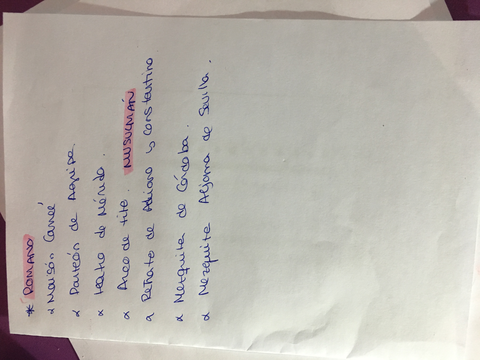 * ROMANO
α Maisón Carreé
α Panteón de Agripa.
α teatro de Mérida.
α Arco de tito. MUSULMÁN
α Retrato de Adriano y constantino
α Mezquita de Córdoba.
α Mezquita Aljama de Sevilla.